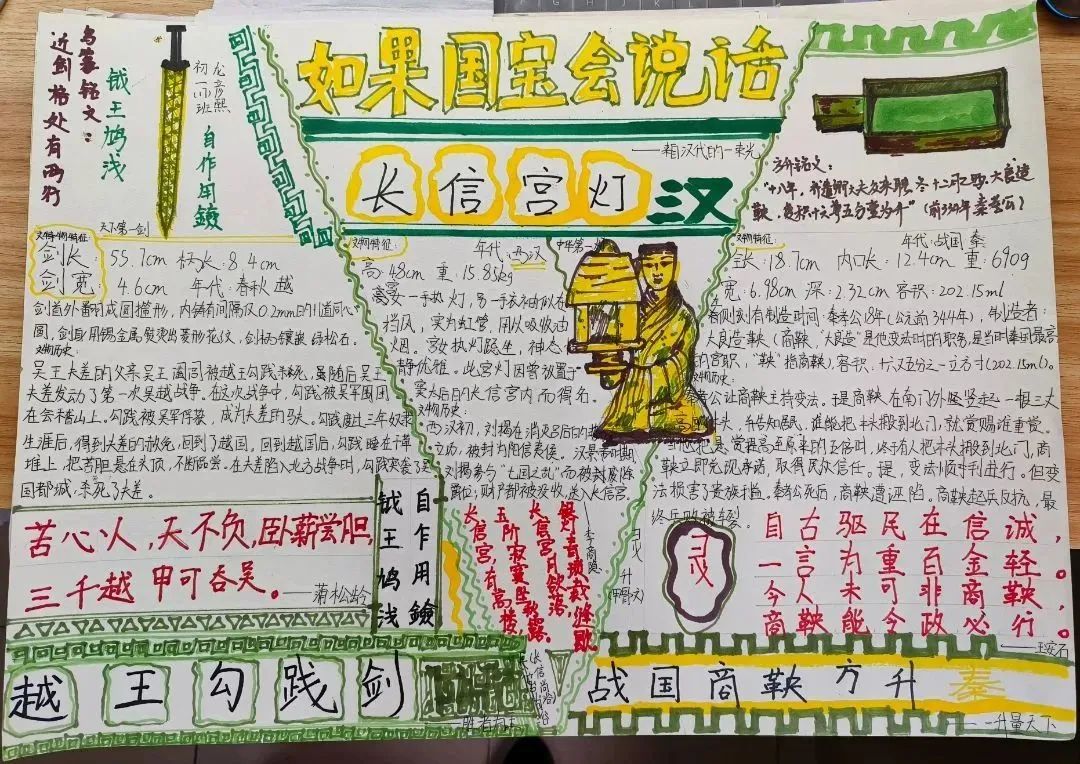 如果国宝会说话
——相汉代的一束光
长信宫灯 汉
鸟篆铭文：
近剑格处有两行
钺王鸠浅
自作用鐱
初一
班
天下第一剑
文物特征：
剑长：55.7cm 柄长：8.4cm
剑宽 4.6cm 年代：春秋 越
剑首外翻卷成圆箍形，内铸有间隔仅0.2mm的11道同心
圆，剑身用锡金属
出菱形花纹，剑柄镶嵌绿松石。
文物历史：
吴王夫差的父亲吴王阖闾被越王勾践杀死，虽随后吴王
夫差发动了第一次吴越战争。在这次战争中，勾践被吴军围困
在会稽山上。勾践被吴军俘获，成为夫差的马夫。勾践度过三年奴隶
生涯后，得到夫差的赦免，回到了越国，回到越国后，勾践睡在干草
堆上，把苦胆悬在头顶，不断
在夫差陷入北方战争时，勾践突袭了吴
国都城，杀死了夫差。
苦心人，天不负，卧薪尝胆，
三千越甲可吞吴。——蒲松龄
钺王鸠浅
自乍用鐱
越王勾践剑
文物特征：
年代：西汉
中华第一灯
高：48cm 重：15.85kg
宫女一手执灯，另一手衣袖似在
挡风，实为虹管，用以吸收油
烟。宫女执灯跽坐，神态
静优雅。此宫灯因曾放置于
窦太后的长信宫内而得名。
文物历史：
西汉初，刘揭在消灭吕后的
立功，被封为阳信夷侯。汉景帝时期，
刘揭参与“七国之乱”而被封废除
爵位，财产都被没收，送入长信宫。
长信宫，有高楼，
五阶寂寞坐秋露。
长信宫月
李商隐
方升铭文：
“十八年，齐
卿大夫众来聘，冬十二月乙酉，大良造
鞅，爰积十六尊五分尊为升”（前344年 秦
文物特征：
年代：战国 秦
全长：18.7cm 内口长：12.4cm 重：690g
宽：6.98cm 深：2.32cm 容积：202.15ml
看侧刻有制造时间：秦孝公18年（公元前344年），制造者：
大良造鞅（商鞅，“大良造”是他变法时的职务，是当时秦国最高
的官职，“鞅”指商鞅），容积：十六又五分之一立方寸（202.15ml）。
文物历史：
秦孝公让商鞅主持变法。于是商鞅在南门外竖起一根三丈
木，并告知居民，谁能把木头搬到北门，就赏赐谁重赏。
赏提高至原来的五倍时，终于有人把木头搬到北门，商
鞅立即兑现承诺，取得民众信任。
变法顺利进行。但变
法损害了贵族利益。秦孝公死后，商鞅遭诬陷。商鞅起兵反抗，最
终兵败被车裂。
升
（甲骨文）
自古驱民在信诚，
一言为重百金轻。
今人未可非商鞅，
商鞅能令政必行。
——王安石
战国商鞅方升 秦
——升量天下